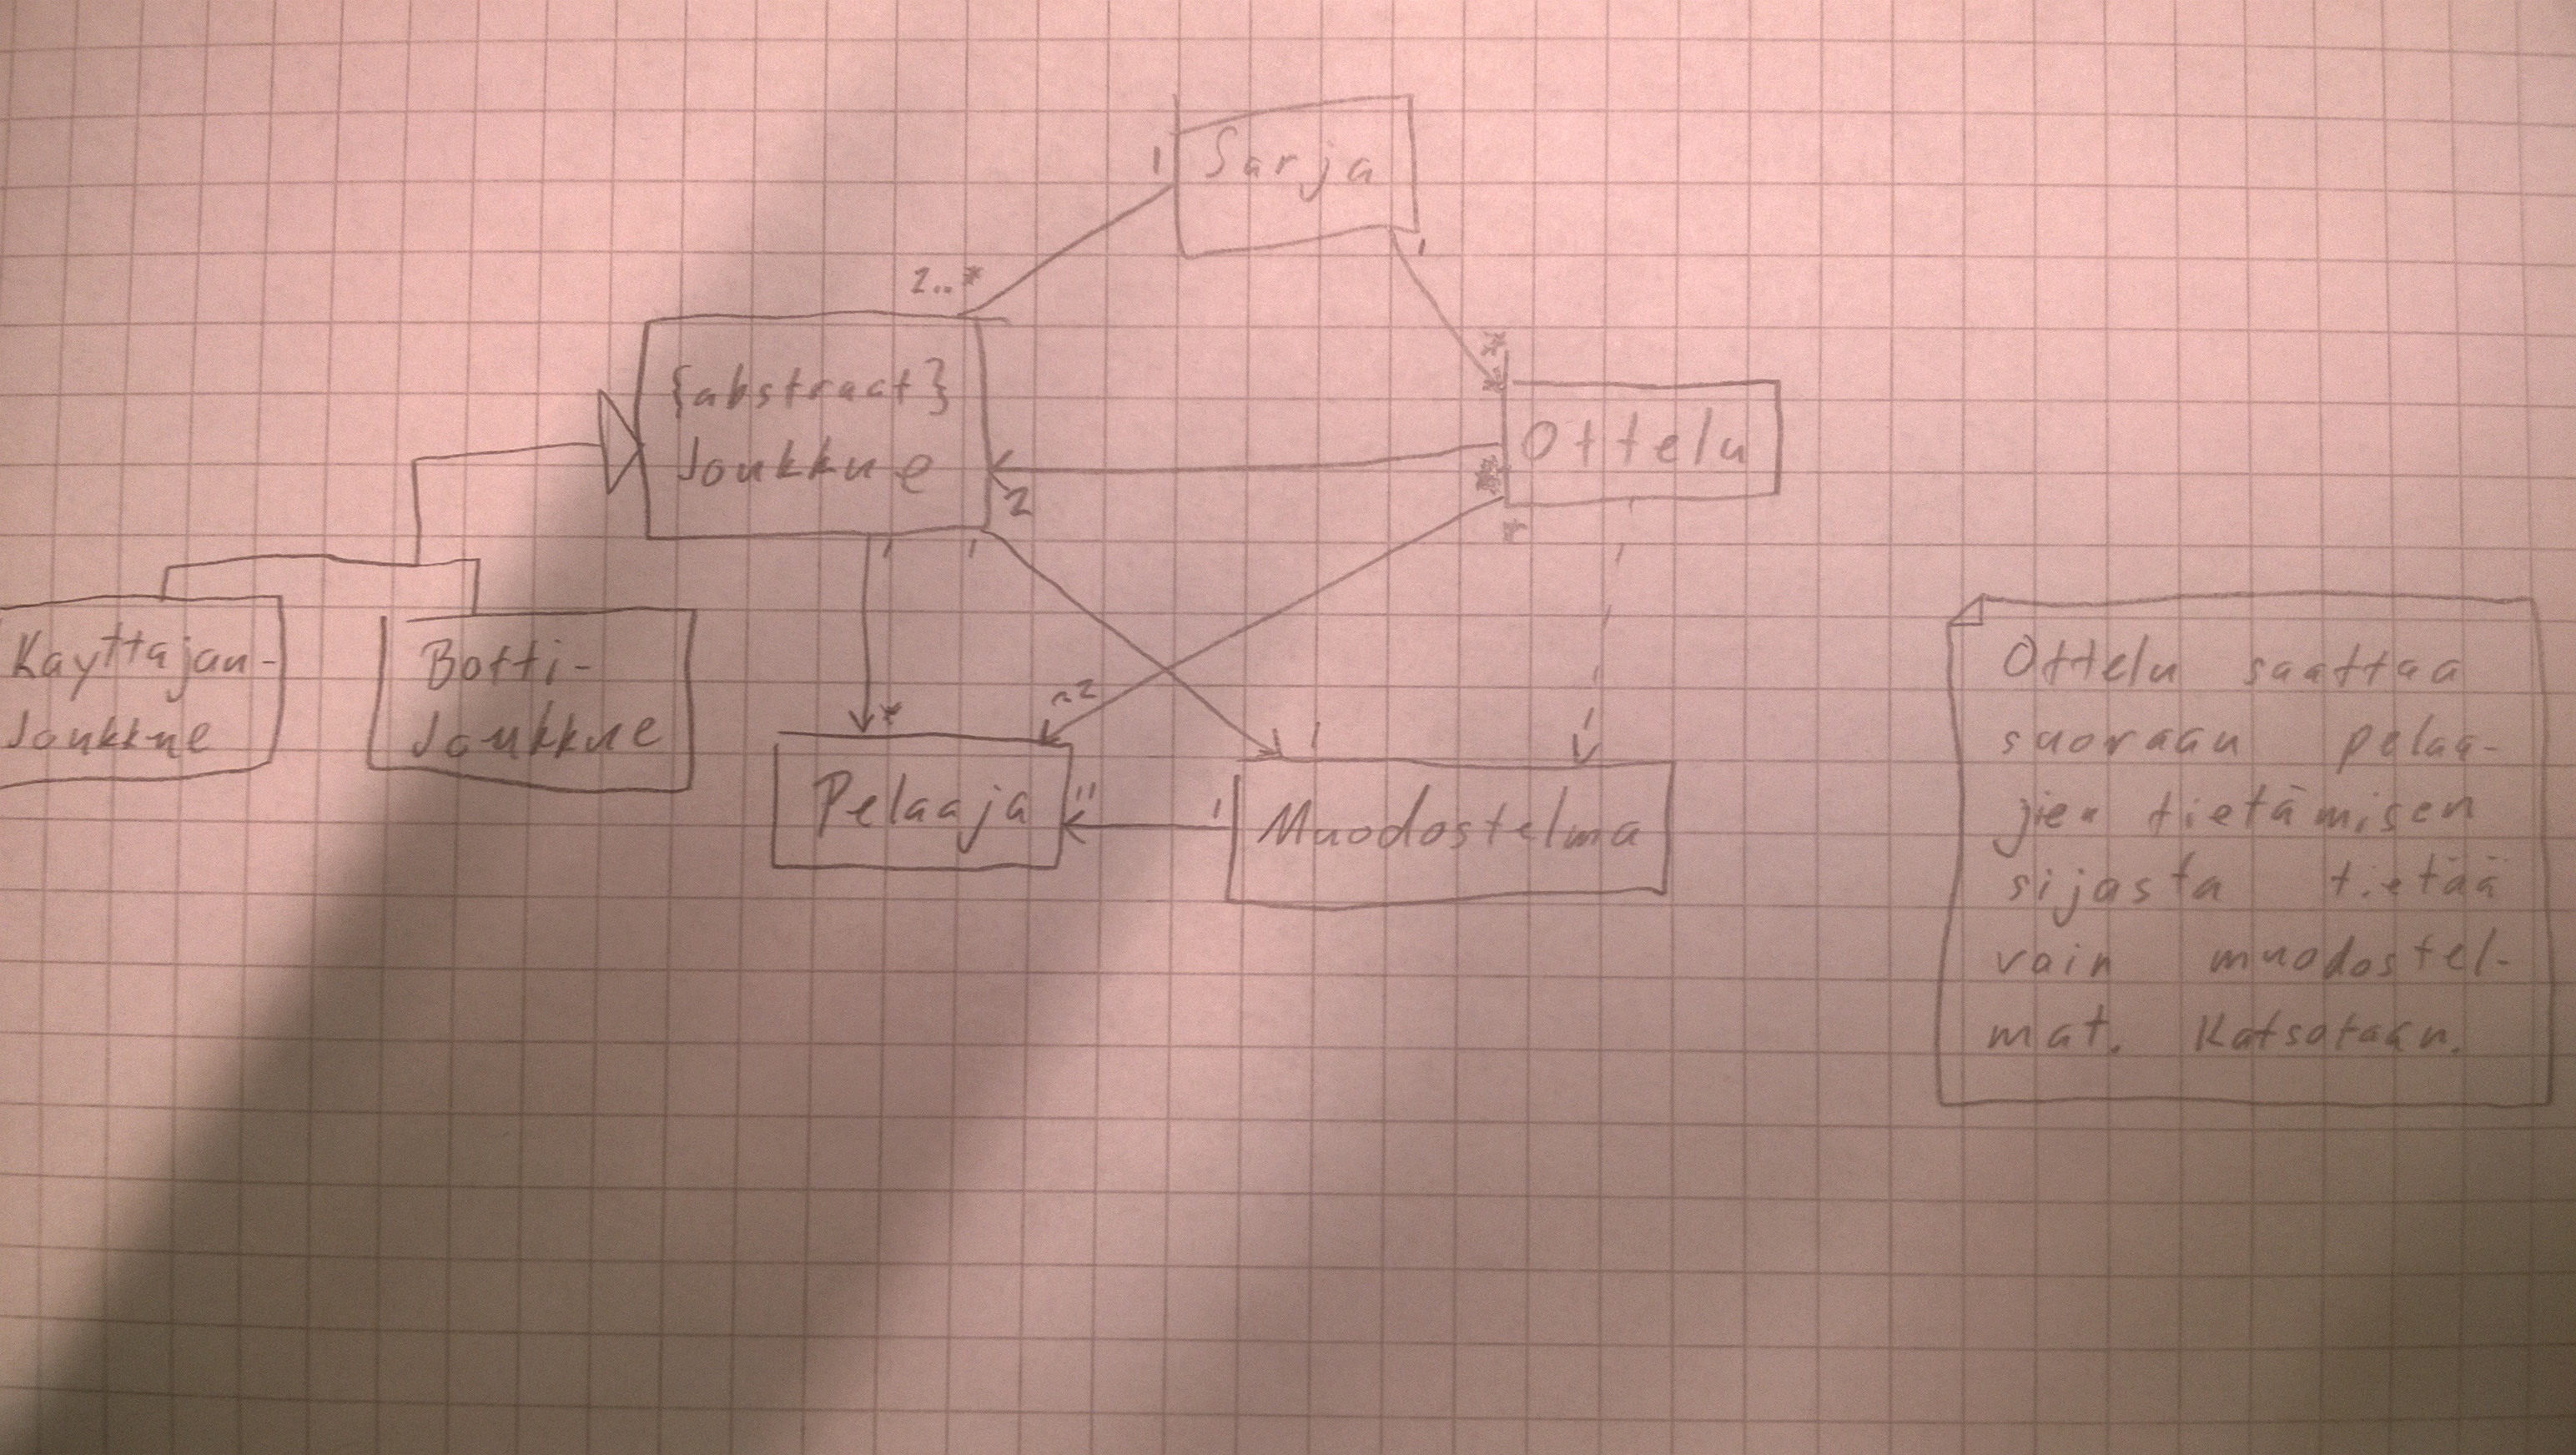 Sarja
1
1
2..*
{abstraat}
Joukkue
Ottelu
2
*
1
1
Kayttajan-
Joukkue
Botti-
Joukkue
*
1
Pelaaja
11
1
Muodostelma
Ottelu saattaa
suoraan pelaa-
jien tietämisen
sijasta tietää
vain muodostel-
mat. Katsotaan.